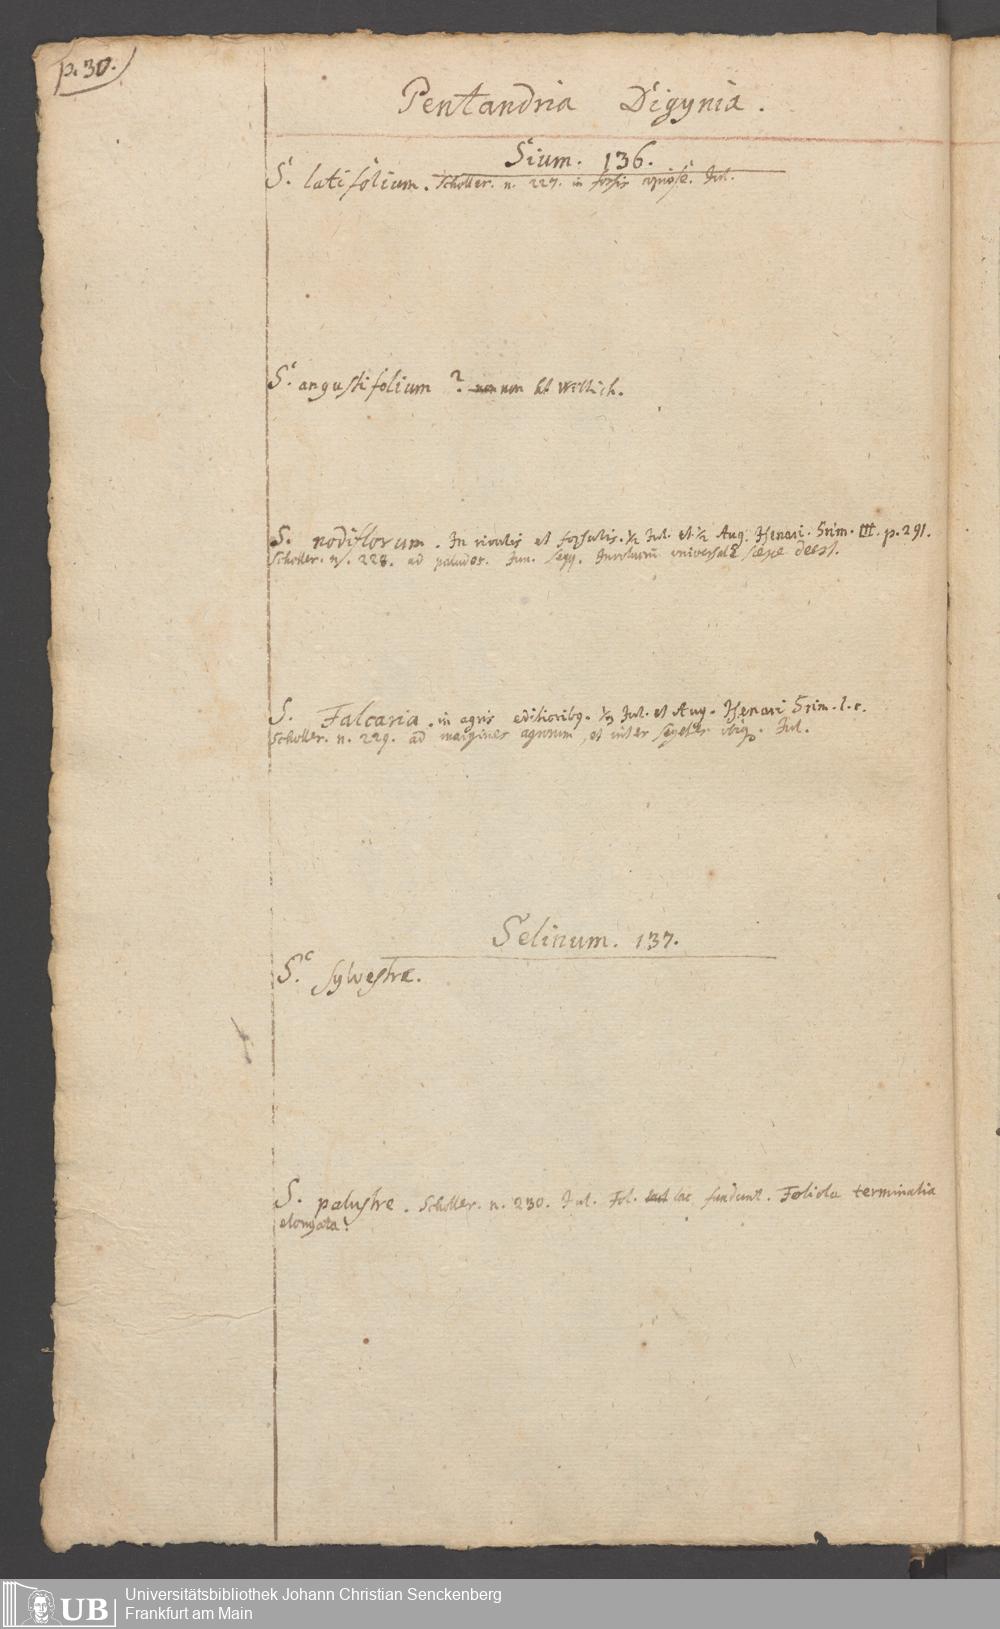 p. 30.
Pentandria Digynia.
Sium. 136.
S. latifolium. Scholler. n. 227. in fossis copiosè. Jul.
S. angustifolium ? non ht Willich.
S. nodiflorum. In rivulis et fossulis. ½ Jul. et ½ Aug. III. p. 291.
Scholler. n. 228. ad paludes. Jun. seqq. Involucrū universale sæpe deest.
S. Falcaria. in agris editioribq. Jul. et Aug. l. c.
Scholler. n. 229. ad margines agrorum, et inter segetes ubiq. Jul.
Selinum. 137.
S. sylvestre.
S. palustre. Scholler. n. 230. Jul. Fol. lact lac fundunt. Foliola terminalia
elongata.
UB Universitätsbibliothek Johann Christian Senckenberg
Frankfurt am Main